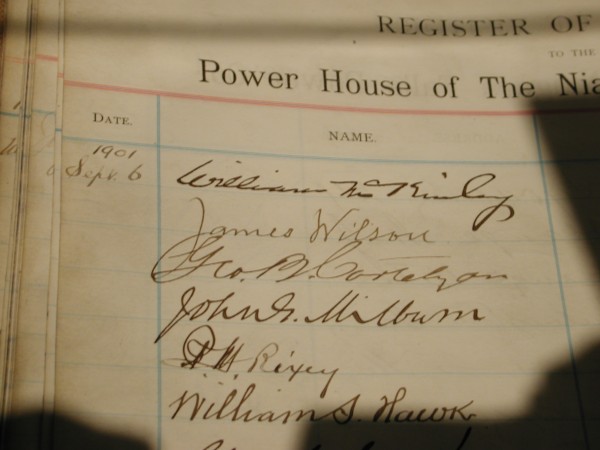 REGISTER OF
TO THE
Power House of The Nia
DATE.
NAME.
1901
Sept. 6
William McKinley
James Wilson
Geo. B. Cortelyou
John G. Milburn
P. M. Rixey
William S. Hawk